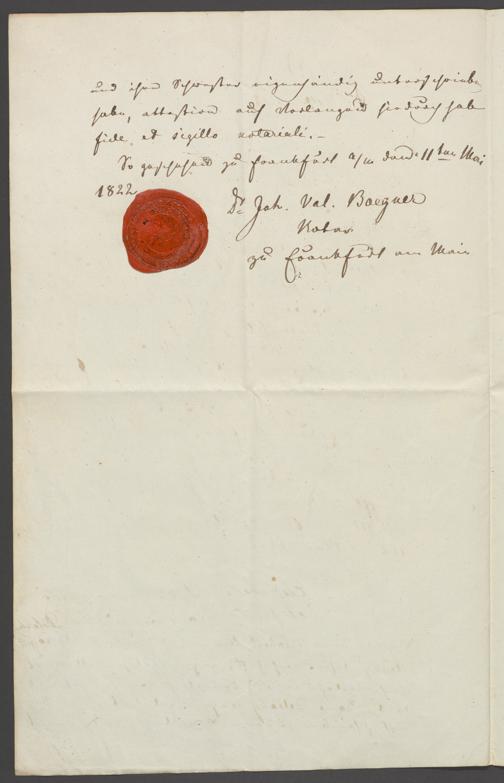 und ihre Schwester eigenhändig unterschrieben
habe, attestire auf Verlangend hiedurch sub
fide et sigillo notariali. –
So geschehend zu Frankfurt a/m den 11ten Mai
1822
Dr. Joh. Val. Boegner
Notar
zu Frankfurt am Main